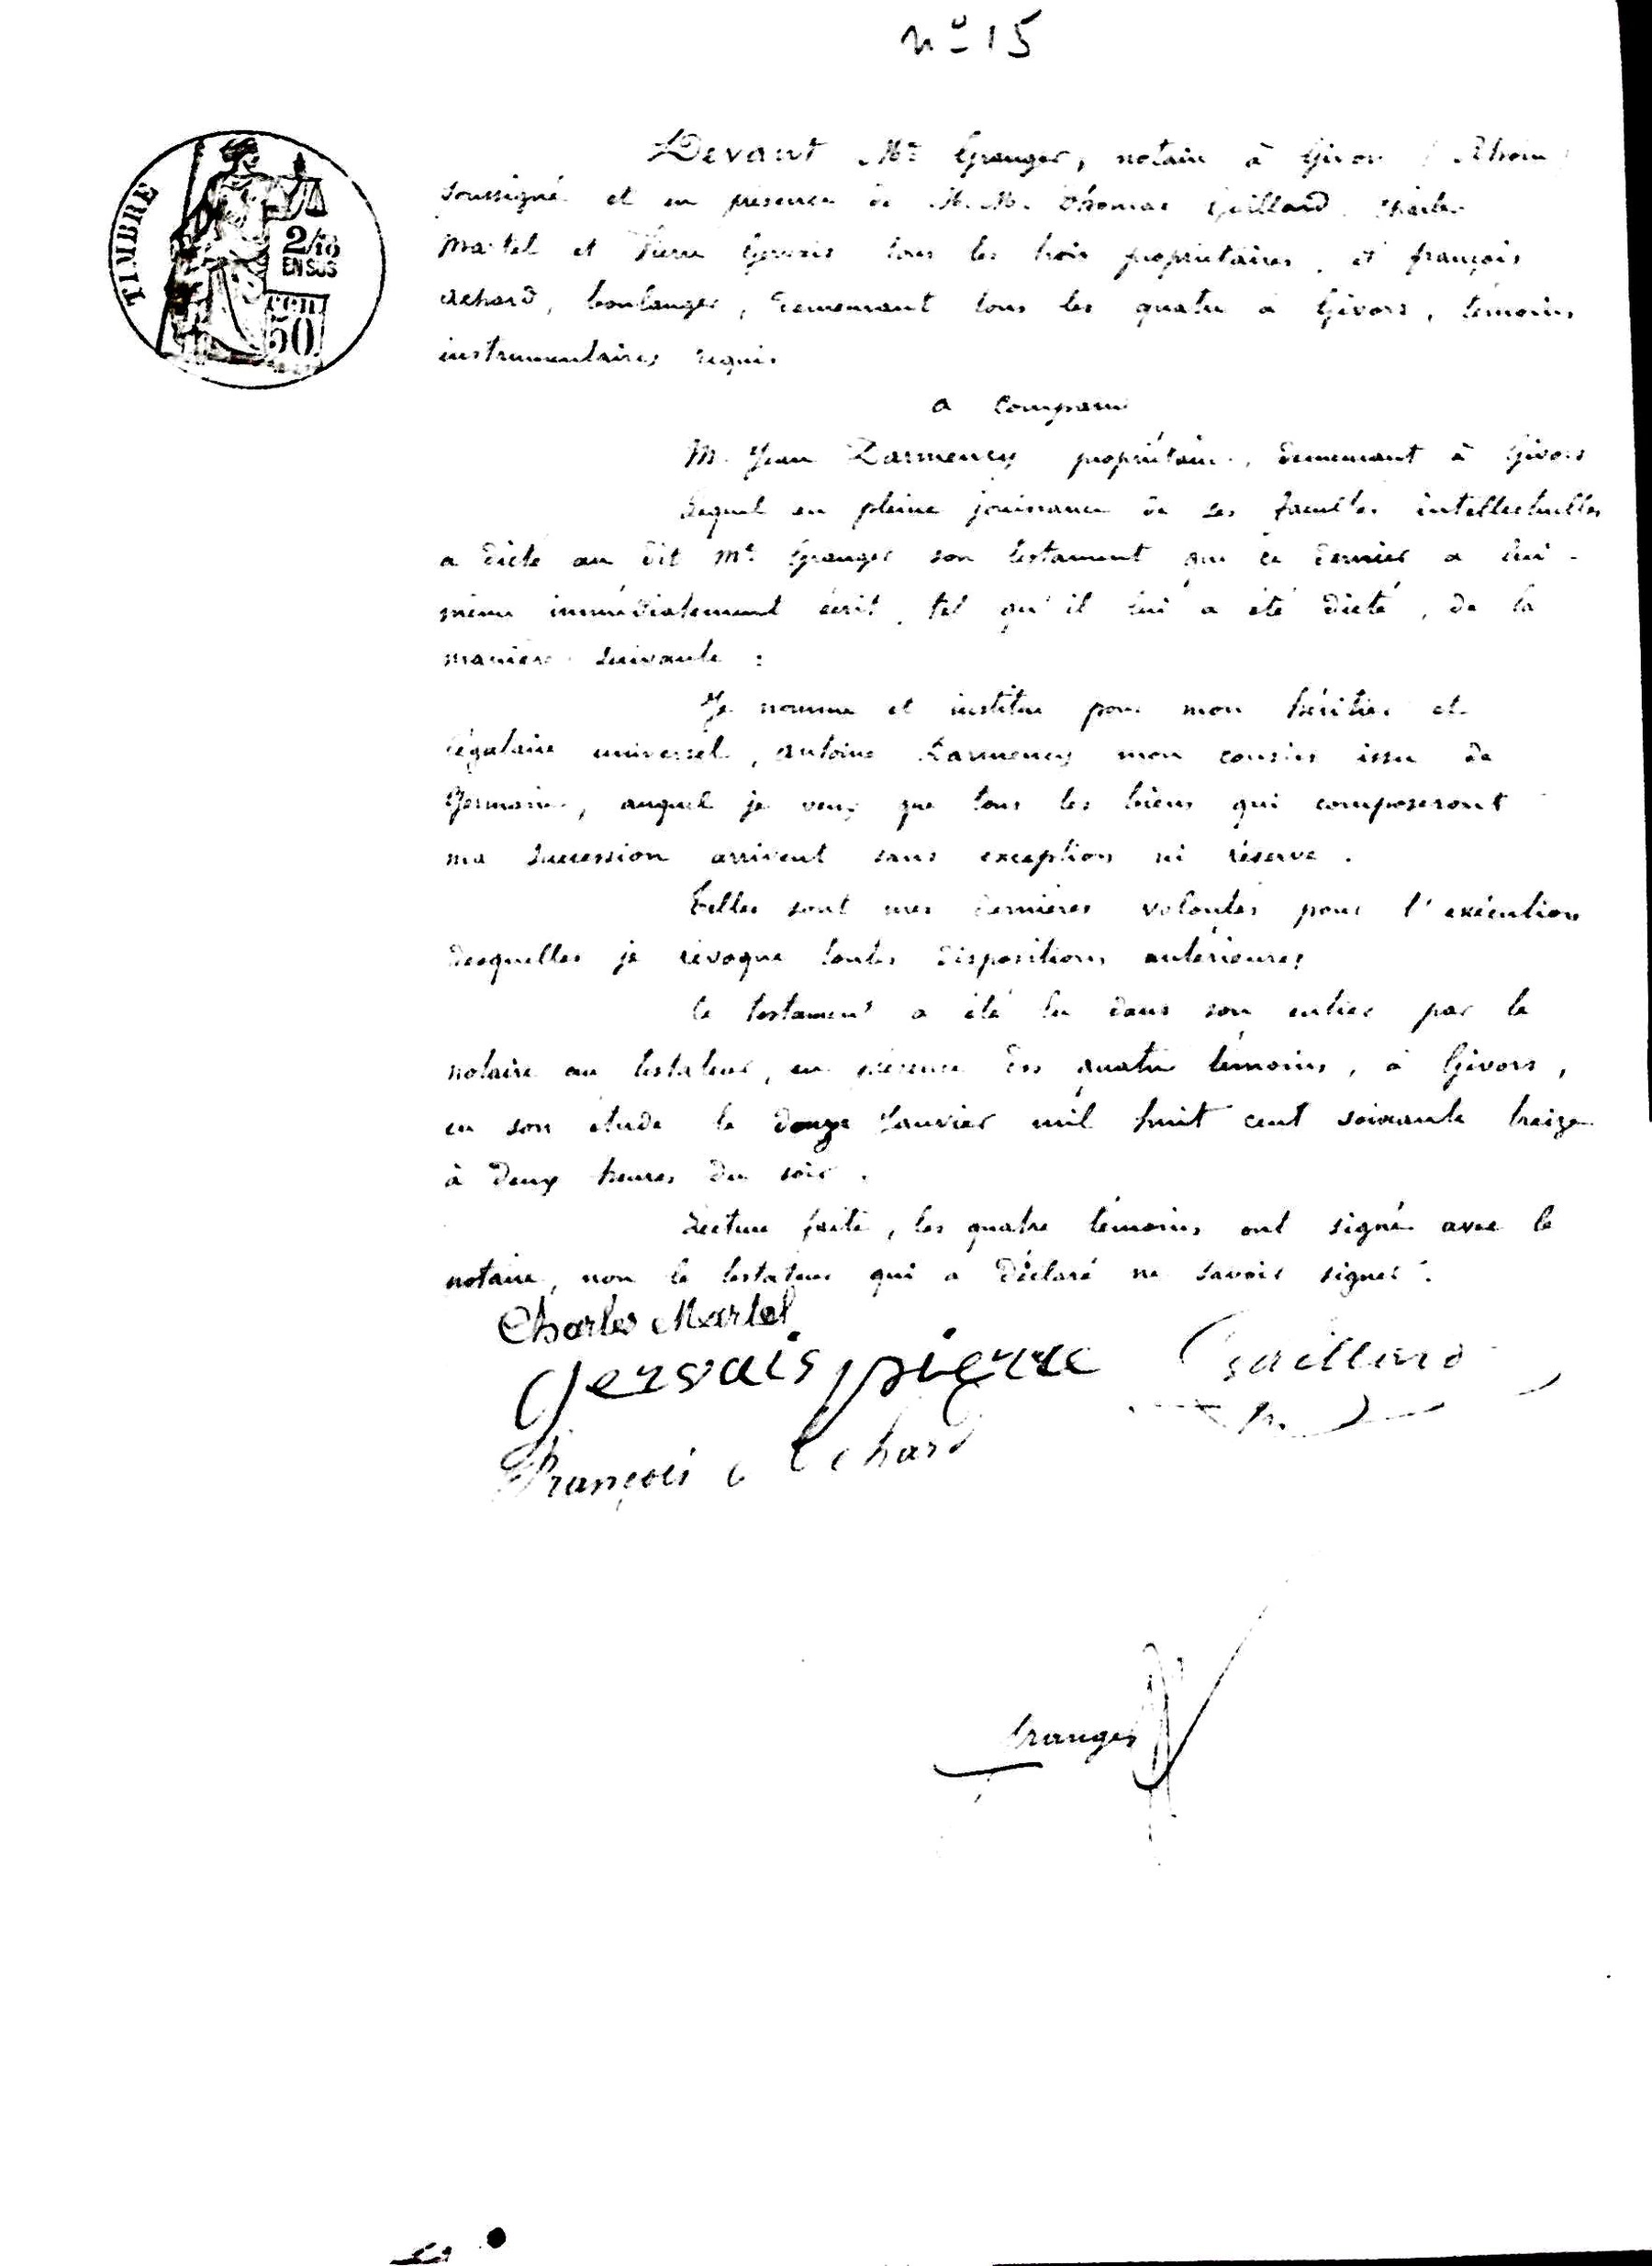 nº 15
TIMBRE
2/10
EN SUS
CEN.
50
Devant Me Granger, notaire à Givors (Rhône)
soussigné et en présence de M.M. Thomas Gaillard, Charles
Martel et Pierre Gervais tous les trois propriétaires, et françois
Achard, boulanger, demeurant tous les quatre à Givors, témoins
instrumentaires requis
a comparu
M. Jean Larmency propriétaire, demeurant à Givors
Lequel en pleine jouissance de ses facultés intellectuelles
a dicté au dit Me Granger son testament que ce dernier a lui-
même immédiatement écrit, tel qu'il lui a été dicté, de la
manière suivante :
Je nomme et institue pour mon héritier et
légataire universel, Antoine Larmency mon cousin issu de
Germain, auquel je veux que tous les biens qui composeront
ma succession arrivent sans exception ni réserve.
Telles sont mes dernières volontés pour l'exécution
desquelles je révoque toutes dispositions antérieures
le testament a été lu dans son entier par le
notaire au testateur, en présence des quatre témoins, à Givors,
en son étude le douze Janvier mil huit cent soixante treize
à deux heures du soir.
Lecture faite, les quatre témoins ont signé avec le
notaire, non le testateur qui a déclaré ne savoir signer.
Charles Martel
Gervais pierre Gaillard
François Achard
Granger